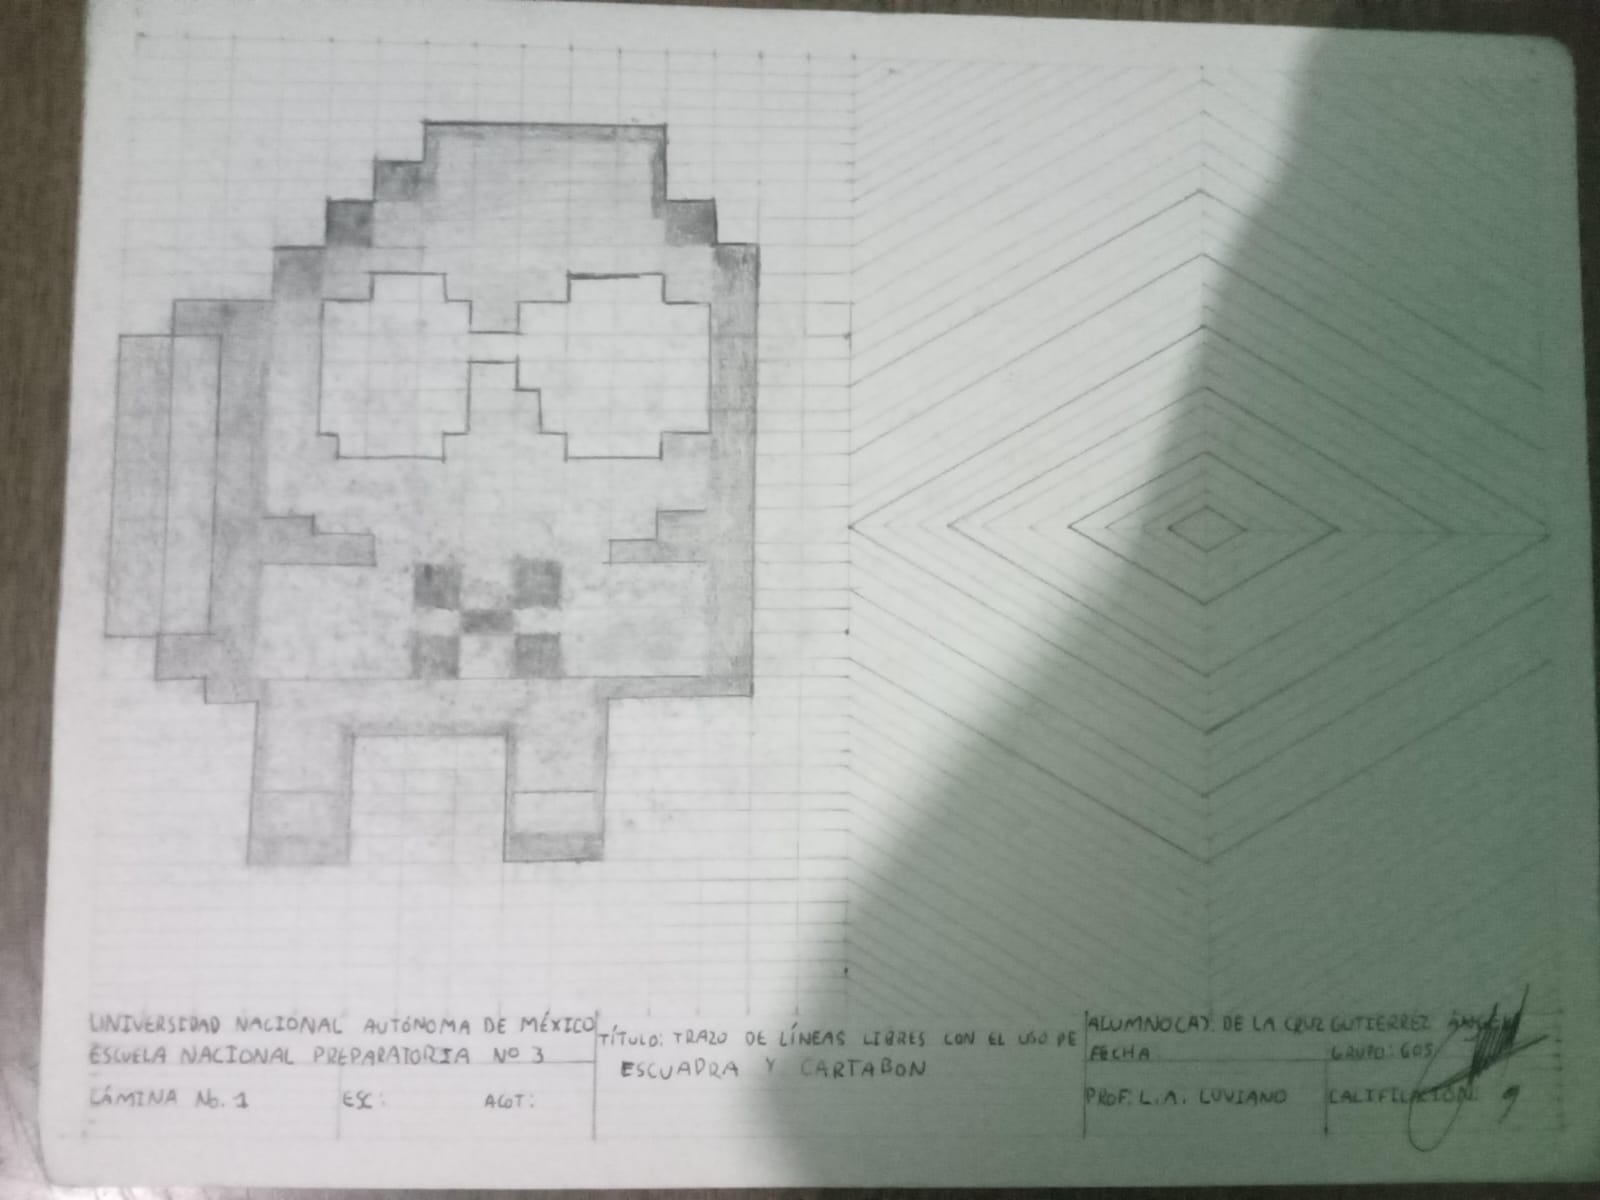 UNIVERSIDAD NACIONAL AUTÓNOMA DE MÉXICO
ESCUELA NACIONAL PREPARATORIA Nº 3
LÁMINA No. 1
ESC:
ACOT:
TÍTULO: TRAZO DE LÍNEAS LIBRES CON EL USO DE
ESCUADRA Y CARTABON
ALUMNO(A): DE LA CRUZ GUTIERREZ
FECHA
GRUPO: 605
PROF: L.A. LUVIANO
CALIFICACIÓN: 9